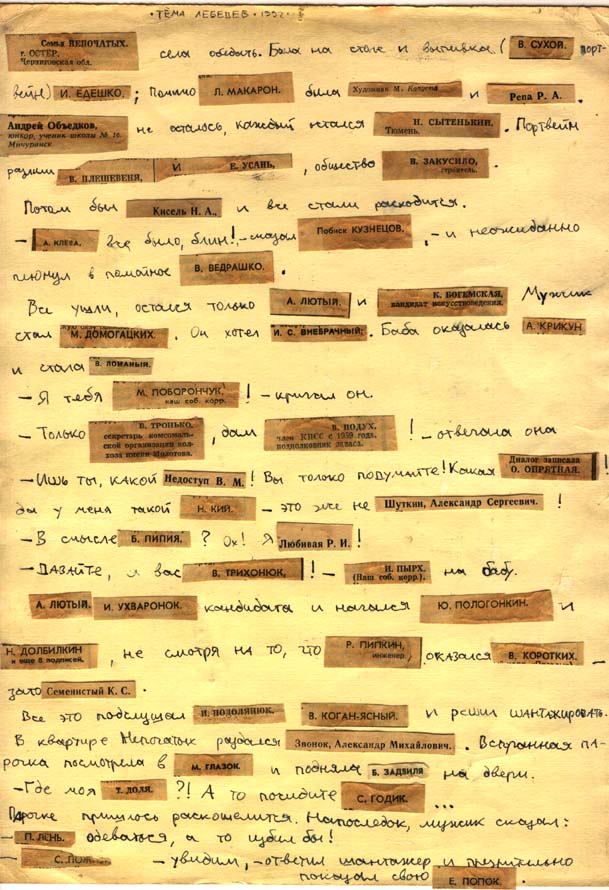 ТЁМА ЛЕБЕДЕВ · 1992 г.
Семья НЕПОЧАТЫХ. г. ОСТЁР, Черниговская обл. села обедать. Была на столе и выпивка (В. СУХОЙ. порт-
вейн) И. ЕДЕШКО. ; Помимо Л. МАКАРОН. была Художник М. и Репа Р. А.
Андрей Объедков, юнкор, ученик школы № 16. Мичуринск не осталось, каждый остался Н. СЫТЕНЬКИЙ, Тюмень. . Портвейн
разлили В. ПЛЕШЕВЕНЯ, И Е. УСАНЬ, , общество В. ЗАКУСИЛО, строитель.
Потом был Кисель Н. А., и все стали расходится.
– А. КЛЕВА, было, блин! – сказал Побиск КУЗНЕЦОВ. , – и неожиданно
плюнул в помойное В. ВЕДРАШКО. .
Все ушли, остался только А. ЛЮТЫЙ. и К. БОГЕМСКАЯ, кандидат искусствоведения. Мужчик
стал М. ДОМОГАЦКИХ. . Он хотел И. С. ВНЕБРАЧНЫЙ; . Баба оказалась А. КРИКУН
и стала В. ЛОМАНЫЙ.
– Я тебя М. ПОБОРОНЧУК, наш соб. корр. ! – кричал он.
– Только В. ТРОНЬКО, секретарь комсомольской организации колхоза имени Молотова. , дам В. ПОДУХ, член КПСС с 1959 года, подполковник запаса. ! – отвечала она
– Ишь ты, какой Недоступ В. М. ! Вы только подумайте! Какая Диалог записала О. ОПРЯТНАЯ. !
да у меня такой Н. КИЙ. – это же не Шуткин, Александр Сергеевич. !
– В смысле Б. ПИПИЯ. ? Ох! Я Любивая Р. И. !
– Давайте, я вас В. ТРИХОНЮК, ! – И. ПЫРХ. (Наш соб. корр.). на бабу.
А. ЛЮТЫЙ. И. УХВАРОНОК. кандидата и начался Ю. ПОЛОГОНКИН. и
Н. ДОЛБИЛКИН и еще 8 подписей. , не смотря на то, что Р. ПИПКИН, инженер. , оказался В. КОРОТКИХ. –
зато Семенистый К. С. .
Все это подслушал И. ПОДОЛЯНЮК. В. КОГАН-ЯСНЫЙ. и решил шантажировать.
В квартире Непочатых раздался Звонок, Александр Михайлович. . Вспуганная па-
рочка посмотрела в М. ГЛАЗОК. и подняла Б. ЗАДВИЛЯ на двери.
– Где моя Т. ДОЛЯ. ?! А то посидите С. ГОДИК. ...
Парочке пришлось раскошелится. Напоследок, мужик сказал:
– П. ЛЕНЬ. одеваться, а то избил бы!
– – увидим, – ответил шантажер и презрительно
показал свою Е. ПОПОК. .